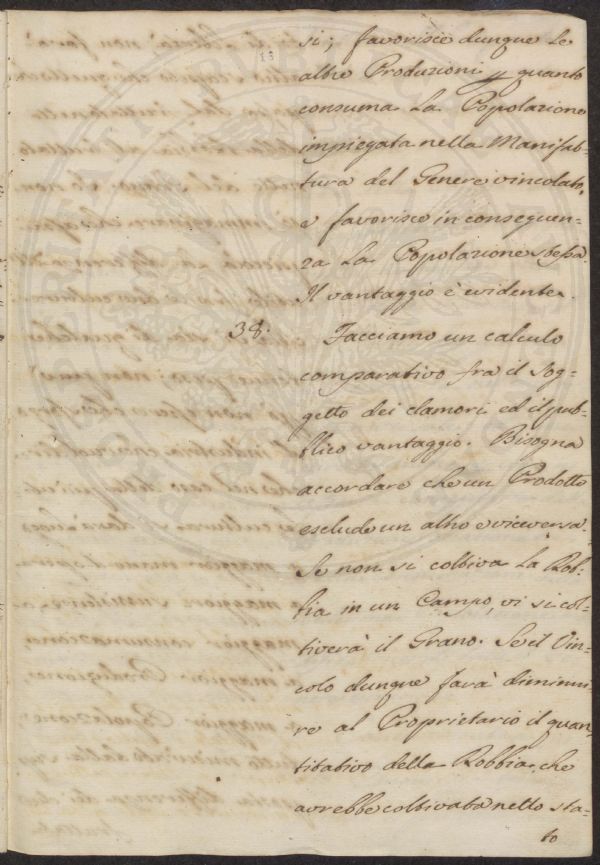 13
si; favorisce dunque le
altre Produzioni p quanto
consuma la Popolazione
impiegata nella Manifat-
tura del Genere vincolato,
e favorisce in conseguen-
za la Popolazione stessa.
Il vantaggio è evidente.
38. Facciamo un calculo
comparativo fra il sog-
getto dei clamori ed il pub-
blico vantaggio. Bisogna
accordare che un Prodotto
esclude un altro e viceversa.
Se non si coltiva la Rob-
bia in un Campo, vi si col-
tiverà il Grano. Se il Vin-
colo dunque farà diminui-
re al Proprietario il quan-
titativo della Robbia, che
avrebbe coltivata nello sta-
to